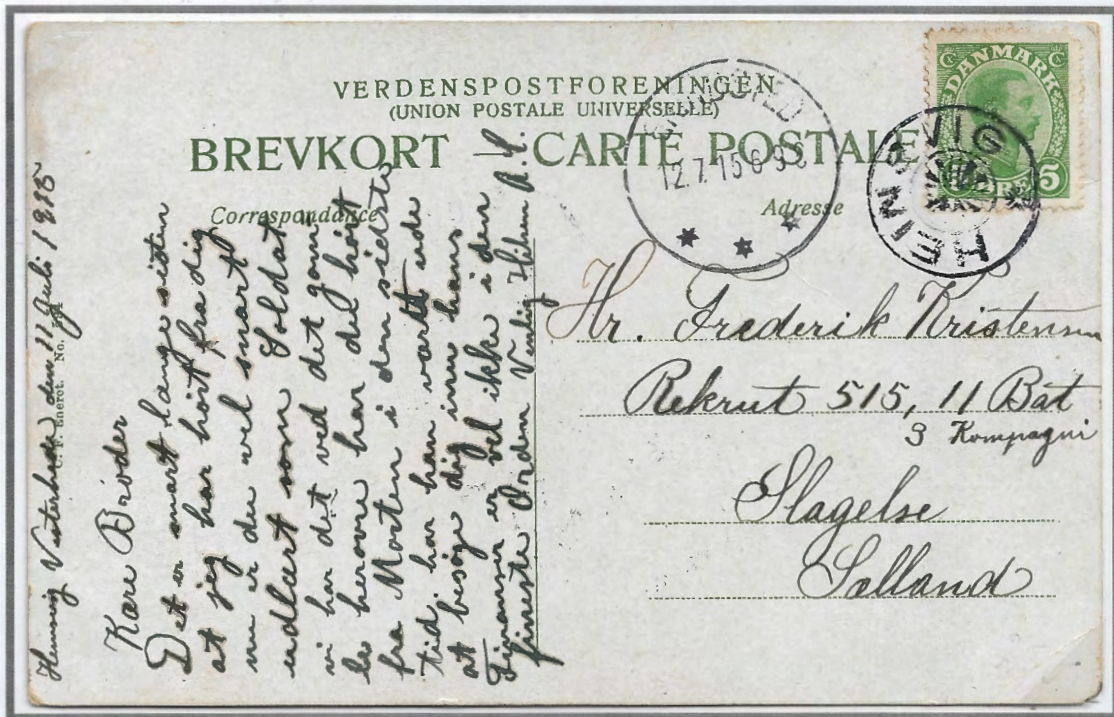 VERDENSPOSTFORENINGEN
(UNION POSTALE UNIVERSELLE)
BREVKORT CARTE POSTALE
Correspondance
Adresse
DANMARK
5
HENSVIG
12.7.15 6-9 E
Hr. Frederik Kristensen
Rekrut 515, 11 Bat
3 Kompagni
Slagelse
Sælland
Vesterhede den 11 Juli 1915
Eneret. No.
Kære Broder
Det er snart længe siden
at jeg har hört fra dig
nu er du vel snart
udlært som Soldat
vi har det ved det gam
le herovre har du hört
fra Morten i den sidste
tid har han været ude
at besøge dig inn hans
er vel ikke i den
fineste Orden Venlig Hilsen A.C.